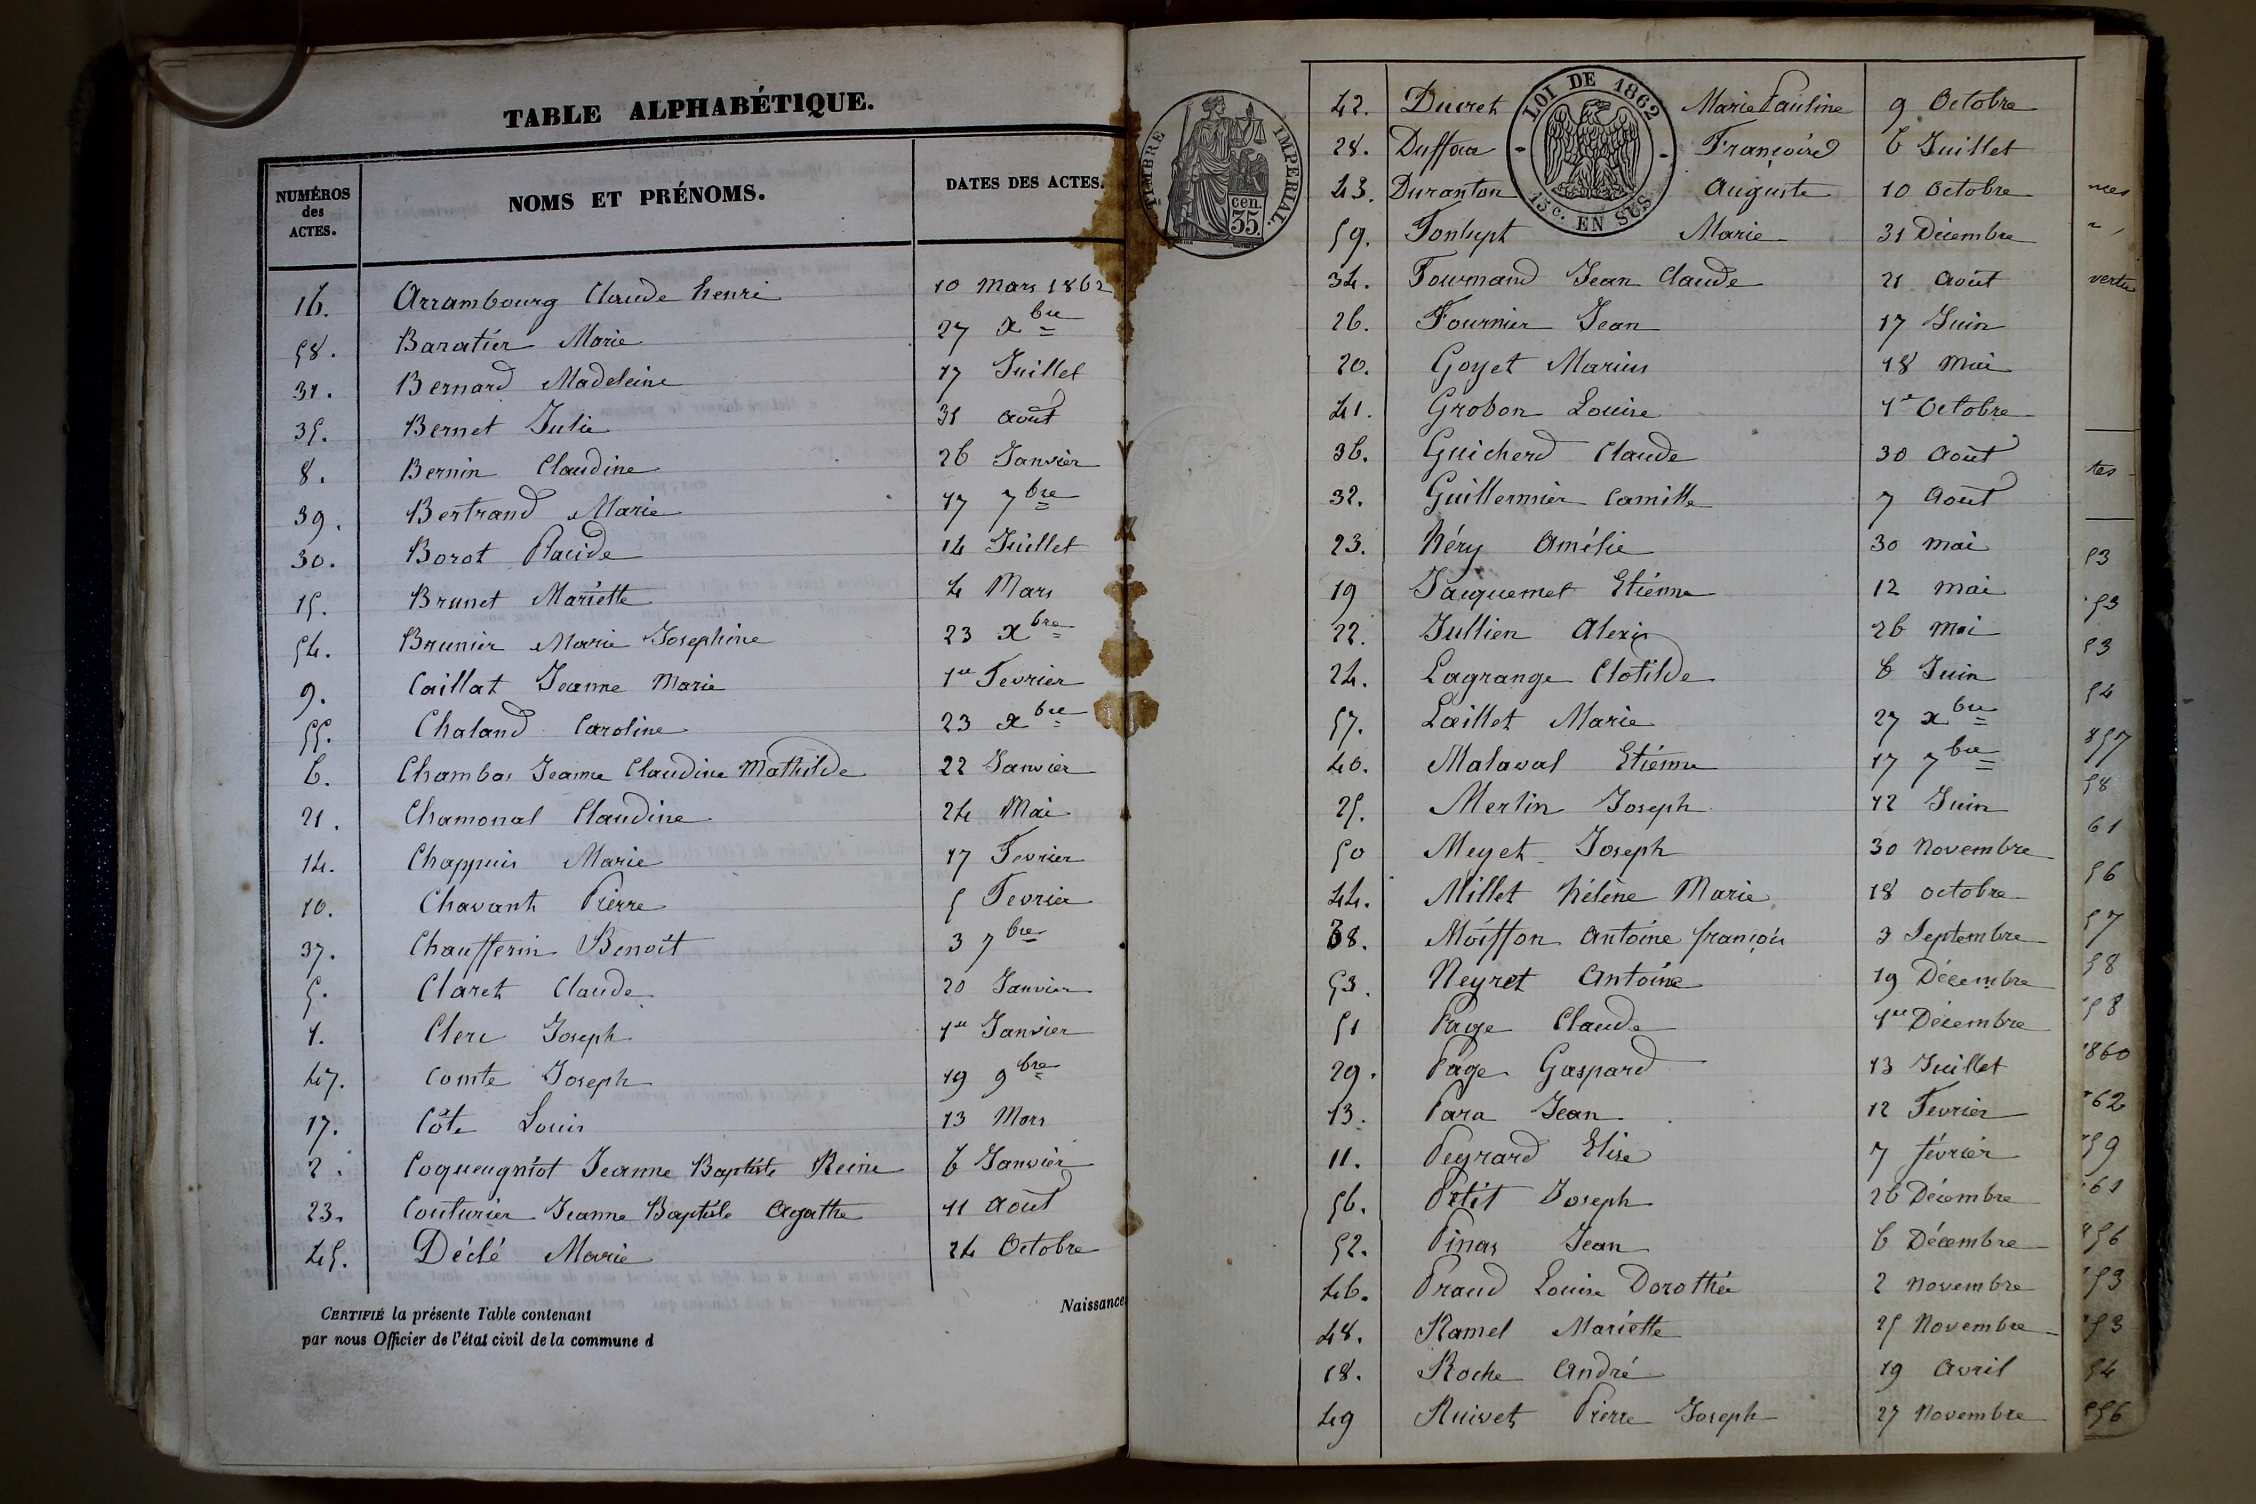 TABLE ALPHABÉTIQUE.
NUMÉROS des ACTES. NOMS ET PRÉNOMS. DATES DES ACTES.
16. Arrambourg Claude henri 10 Mars 1862
58. Baratier Marie 27 xbre
31. Bernard Madeleine 17 Juillet
35. Bernet Julie 31 août
8. Bernin Claudine 26 Janvier
39. Bertrand Marie 17 7bre
30. Borot Placide 14 Juillet
15. Brunet Mariette 4 Mars
54. Brunier Marie Josephine 23 xbre
9. Caillat Jeanne Marie 1er Fevrier
55. Chaland Caroline 23 xbre
6. Chambas Jeanne Claudine Mathilde 22 Janvier
21. Chamonal Claudine 24 Mai
14. Chappuis Marie 17 Fevrier
10. Chavant Pierre 5 Fevrier
37. Chaufferin Benoît 3 7bre
5. Claret Claude 20 Janvier
1. Clerc Joseph 1er Janvier
47. Comte Joseph 19 9bre
17. Côte Louis 13 Mars
2. Coqueugniot Jeanne Baptiste Reine 6 Janvier
23. Couturier Jeanne Baptiste Agathe 11 Août
45. Déclé Marie 24 Octobre
CERTIFIÉ la présente Table contenant Naissance
par nous Officier de l'état civil de la commune d
TIMBRE IMPERIAL.
35 cen.
LOI DE 1862
15c. EN SUS
42. Ducret Marie Pauline 9 Octobre
28. Duffour Françoise 6 Juillet
43. Duranton Auguste 10 Octobre
59. Fonlupt Marie 31 Décembre
34. Fournand Jean Claude 21 Août
26. Fournier Jean 17 Juin
20. Goyet Marius 18 Mai
41. Grobon Louise 1er Octobre
36. Guicherd Claude 30 Août
32. Guillermier Camille 7 Août
23. héry Amélie 30 mai
19 Jacquemet Etienne 12 mai
22. Jullien Alexis 26 Mai
24. Lagrange Clotilde 6 Juin
57. Lœillet Marie 27 xbre
40. Malaval Etienne 17 7bre
25. Merlin Joseph 12 Juin
50 Meyet Joseph 30 Novembre
44. Millet hélène Marie 18 octobre
38. Moiffon Antoine françois 3 Septembre
53. Neyret Antoine 19 Décembre
51 Page Claude 1er Décembre
29. Page Gaspard 13 Juillet
13. Para Jean 12 Fevrier
11. Peyrard Elise 7 février
56. Petit Joseph 26 Décembre
52. Pinas Jean 6 Décembre
46. Praud Louise Dorothée 2 Novembre
48. Ramel Mariette 25 Novembre
18. Roche André 19 Avril
49 Ruivet Pierre Joseph 27 Novembre